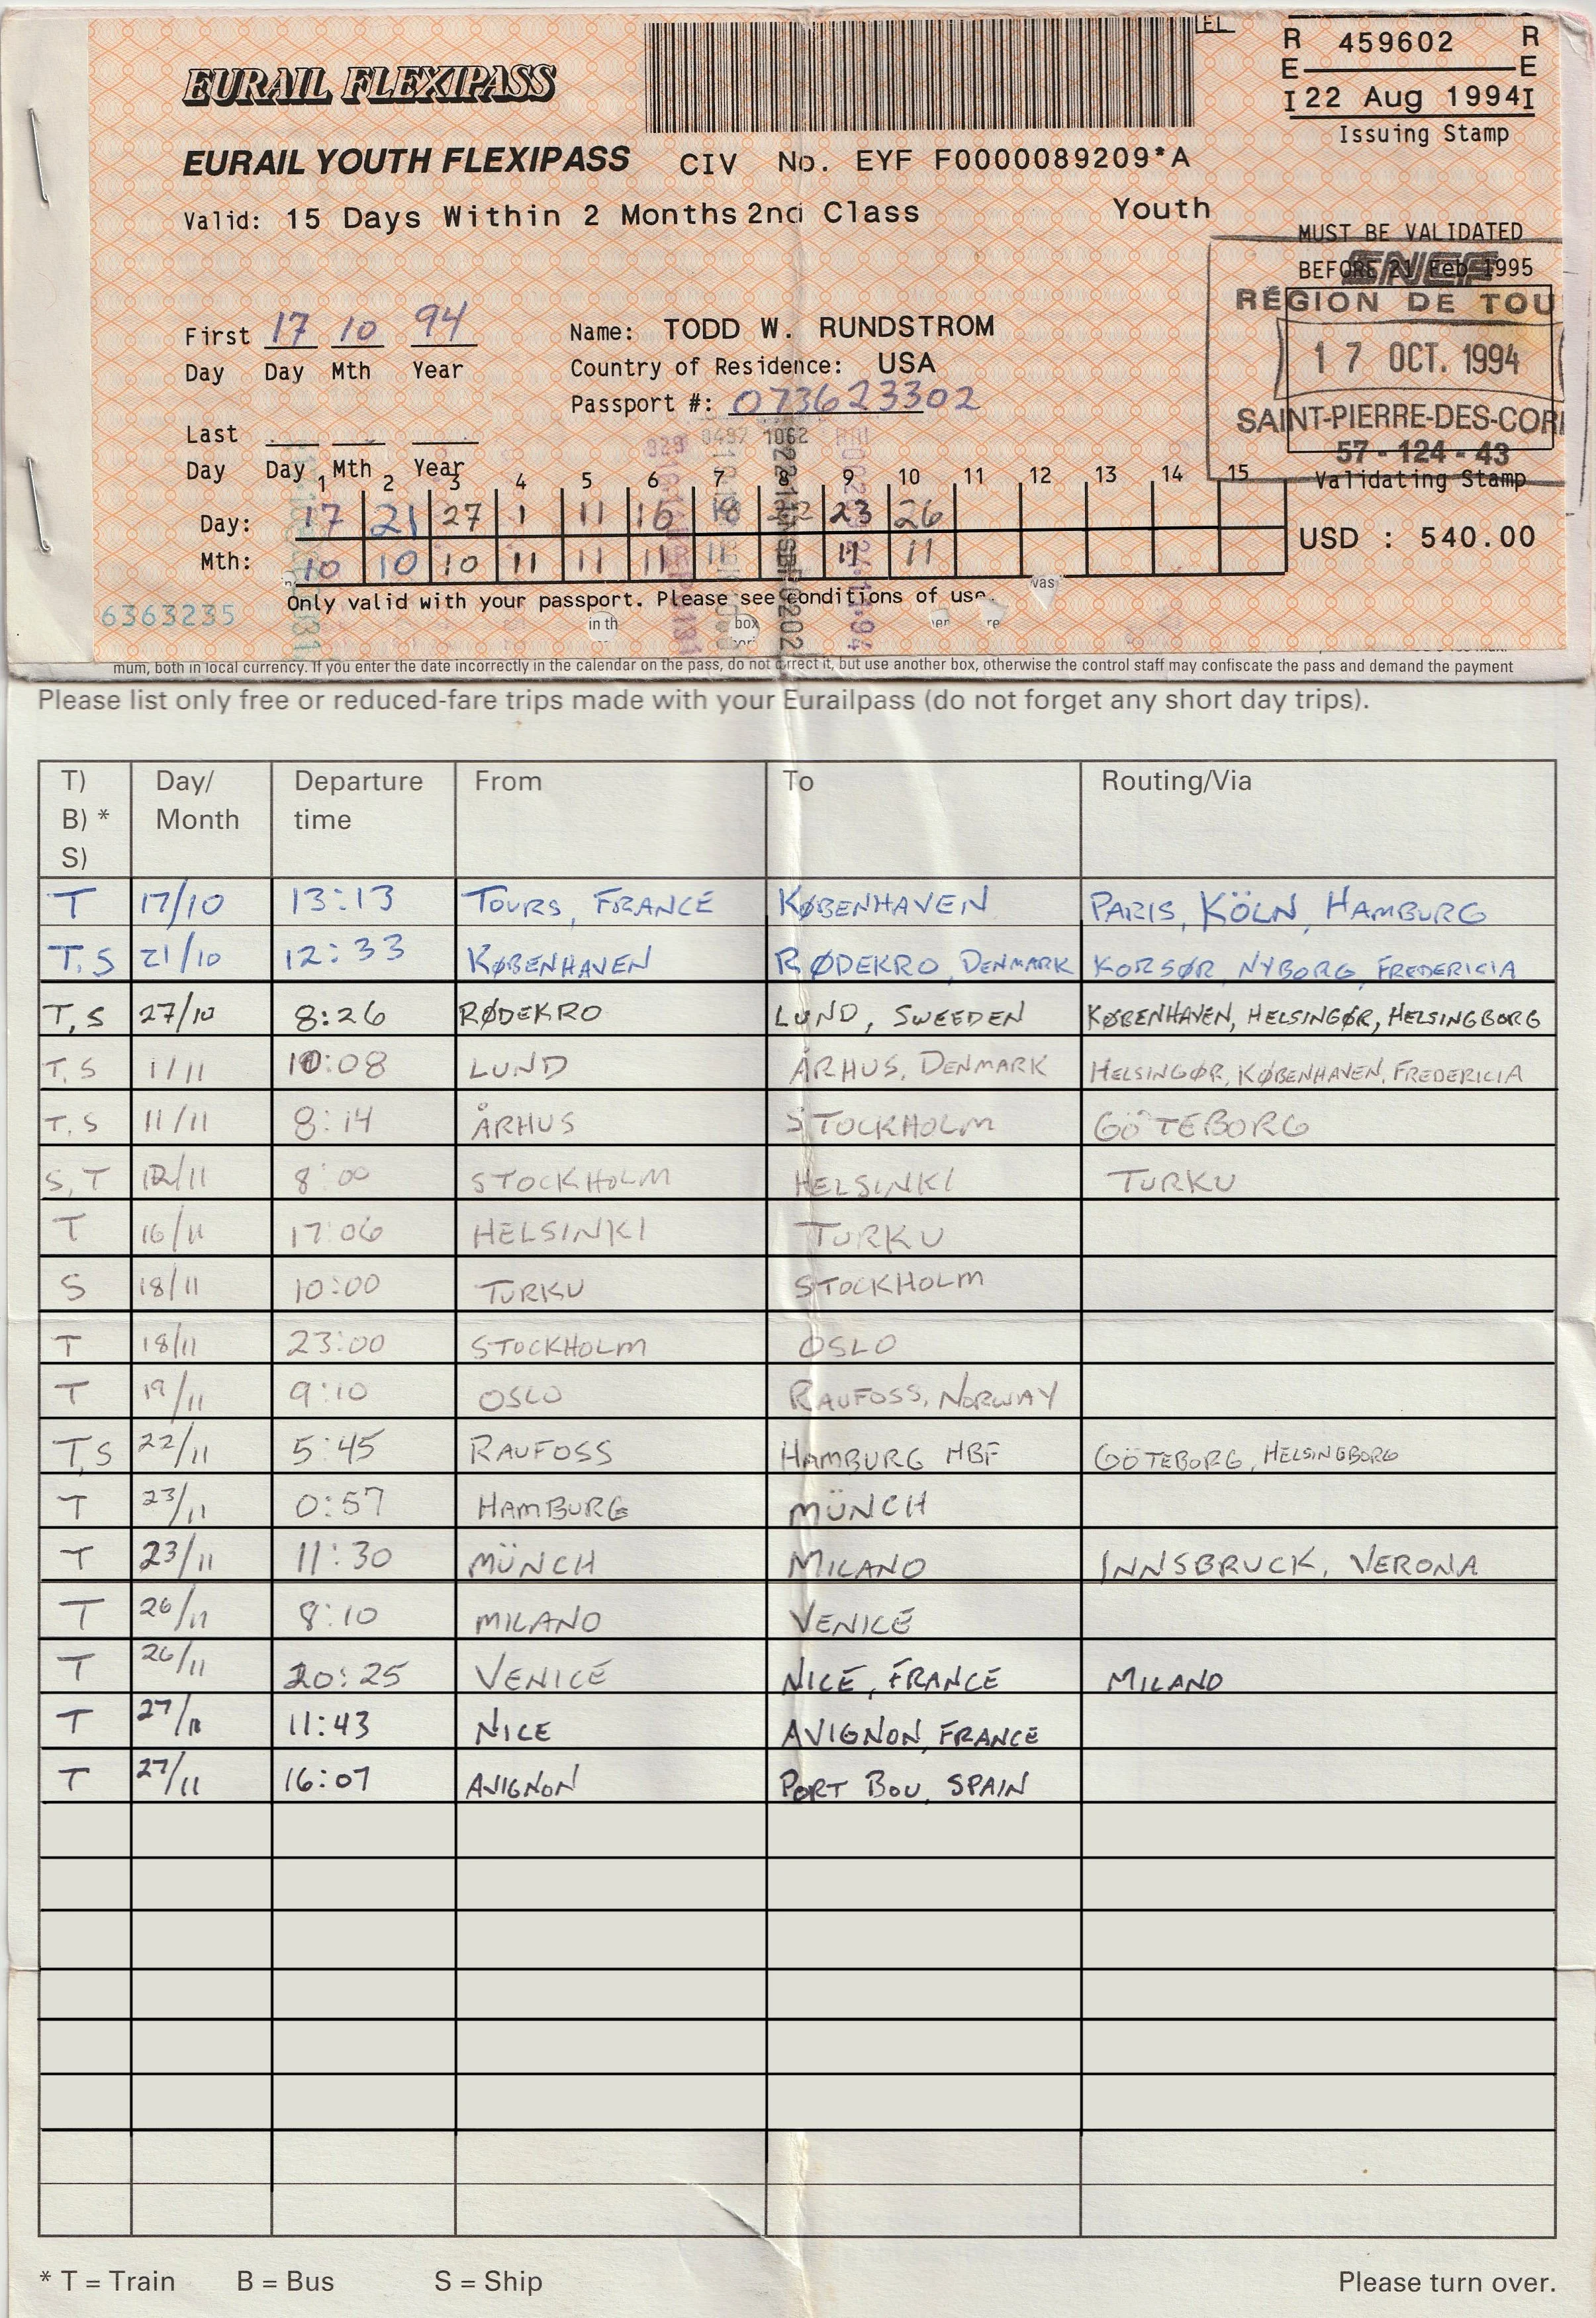 EL
EURAIL FLEXIPASS
R 459602 R
E E
I 22 Aug 1994 I
Issuing Stamp
EURAIL YOUTH FLEXIPASS CIV No. EYF F0000089209*A
Valid: 15 Days Within 2 Months 2nd Class Youth
MUST BE VALIDATED
BEFORE 21 Feb 1995
SNCF
RÉGION DE TOU
17 OCT. 1994
SAINT-PIERRE-DES-COR
57-124-43
Validating Stamp
First 17 10 94
Day Day Mth Year
Name: TODD W. RUNDSTROM
Country of Residence: USA
Passport #: 073623302
Last
Day Day Mth Year
0497 1062
1 2 3 4 5 6 7 8 9 10 11 12 13 14 15
Day: 17 21 27 1 11 16 18 22 23 26
Mth: 10 10 10 11 11 11 11 11 11
USD : 540.00
Only valid with your passport. Please see conditions of use.
vas
6363235
in th box en re
mum, both in local currency. If you enter the date incorrectly in the calendar on the pass, do not correct it, but use another box, otherwise the control staff may confiscate the pass and demand the payment
Please list only free or reduced-fare trips made with your Eurailpass (do not forget any short day trips).
T) Day/ Departure From To Routing/Via
B) * Month time
S)
T 17/10 13:13 TOURS, FRANCE KØBENHAVEN PARIS, KÖLN, HAMBURG
T, S 21/10 12:33 KØBENHAVEN RØDEKRO, DENMARK KORSØR, NYBORG, FREDERICIA
T, S 27/10 8:26 RØDEKRO LUND, SWEEDEN KØBENHAVEN, HELSINGØR, HELSINGBORG
T, S 1/11 10:08 LUND ÅRHUS, DENMARK HELSINGØR, KØBENHAVEN, FREDERICIA
T, S 11/11 8:14 ÅRHUS STOCKHOLM GÖTEBORG
S, T 12/11 8:00 STOCKHOLM HELSINKI TURKU
T 16/11 17:06 HELSINKI TURKU
S 18/11 10:00 TURKU STOCKHOLM
T 18/11 23:00 STOCKHOLM OSLO
T 19/11 9:10 OSLO RAUFOSS, NORWAY
T, S 22/11 5:45 RAUFOSS HAMBURG HBF GÖTEBORG, HELSINGBORG
T 23/11 0:57 HAMBURG MÜNCH
T 23/11 11:30 MÜNCH MILANO INNSBRUCK, VERONA
T 26/11 8:10 MILANO VENICE
T 26/11 20:25 VENICE NICE, FRANCE MILANO
T 27/11 11:43 NICE AVIGNON, FRANCE
T 27/11 16:07 AVIGNON PORT BOU, SPAIN
* T = Train B = Bus S = Ship Please turn over.